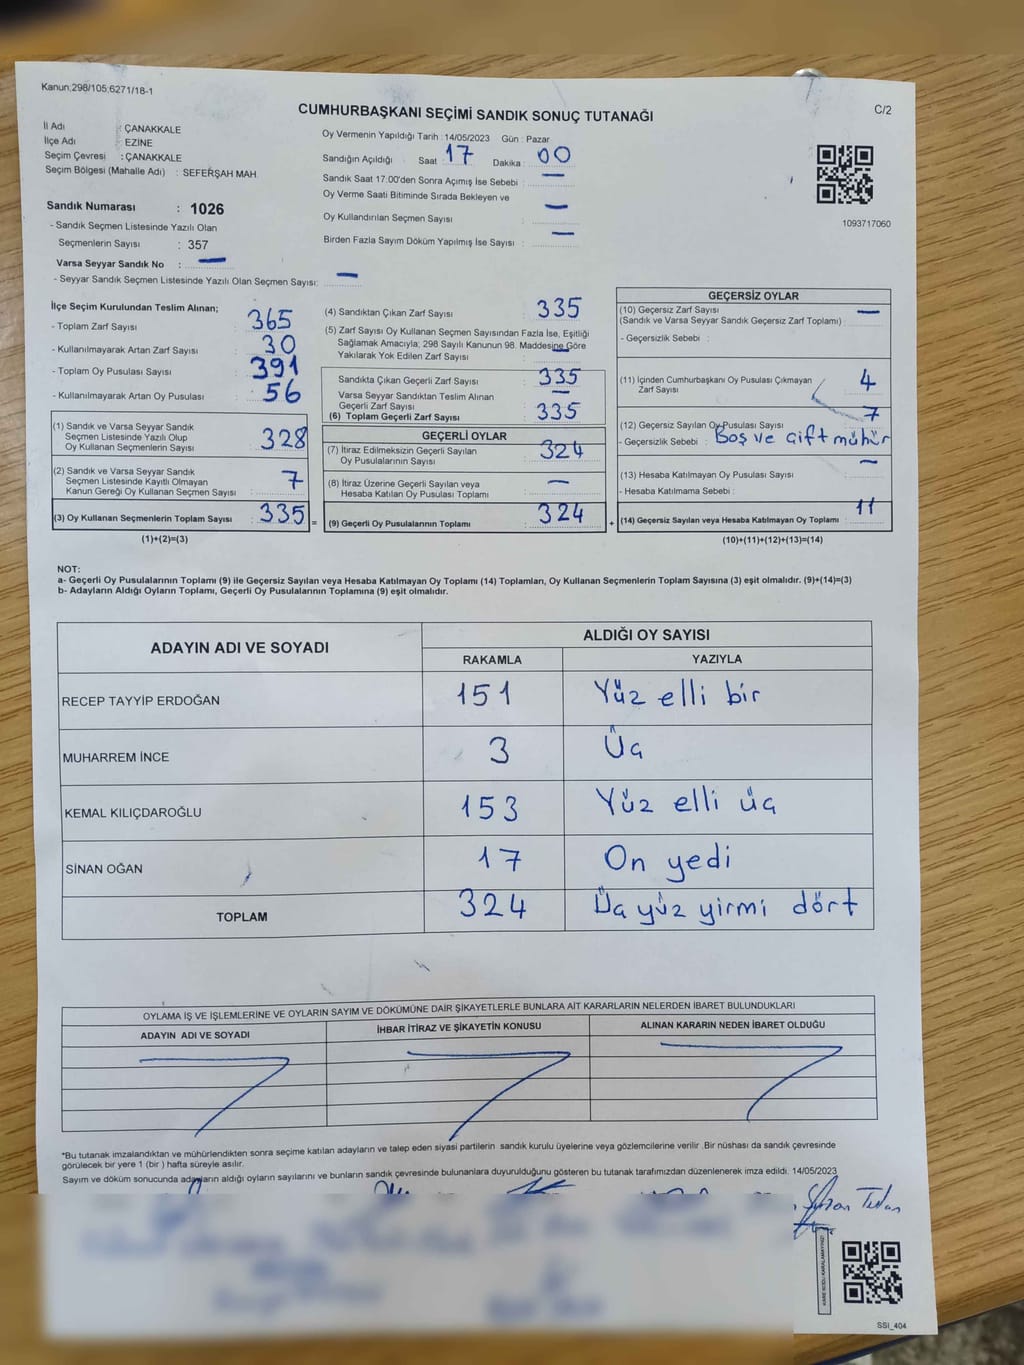 Kanun;298/105;6271/18-1
C/2
CUMHURBAŞKANI SEÇİMİ SANDIK SONUÇ TUTANAĞI
İl Adı : ÇANAKKALE
İlçe Adı : EZİNE
Seçim Çevresi : ÇANAKKALE
Seçim Bölgesi (Mahalle Adı) : SEFERŞAH MAH.
Oy Vermenin Yapıldığı Tarih : 14/05/2023 Gün : Pazar
Sandığın Açıldığı Saat : 17 Dakika : 00
Sandık Saat 17.00'den Sonra Açımış İse Sebebi : —
Oy Verme Saati Bitiminde Sırada Bekleyen ve
Oy Kullandırılan Seçmen Sayısı : —
Birden Fazla Sayım Döküm Yapılmış İse Sayısı : —
1093717060
Sandık Numarası : 1026
- Sandık Seçmen Listesinde Yazılı Olan
Seçmenlerin Sayısı : 357
Varsa Seyyar Sandık No : —
- Seyyar Sandık Seçmen Listesinde Yazılı Olan Seçmen Sayısı: —
İlçe Seçim Kurulundan Teslim Alınan;
- Toplam Zarf Sayısı : 365
- Kullanılmayarak Artan Zarf Sayısı : 30
- Toplam Oy Pusulası Sayısı : 391
- Kullanılmayarak Artan Oy Pusulası : 56
(1) Sandık ve Varsa Seyyar Sandık
Seçmen Listesinde Yazılı Olup
Oy Kullanan Seçmenlerin Sayısı : 328
(2) Sandık ve Varsa Seyyar Sandık
Seçmen Listesinde Kayıtlı Olmayan
Kanun Gereği Oy Kullanan Seçmen Sayısı : 7
(3) Oy Kullanan Seçmenlerin Toplam Sayısı : 335 =
(1)+(2)=(3)
(4) Sandıktan Çıkan Zarf Sayısı : 335
(5) Zarf Sayısı Oy Kullanan Seçmen Sayısından Fazla İse, Eşitliği
Sağlamak Amacıyla; 298 Sayılı Kanunun 98. Maddesine Göre
Yakılarak Yok Edilen Zarf Sayısı : —
Sandıkta Çıkan Geçerli Zarf Sayısı : 335
Varsa Seyyar Sandıktan Teslim Alınan
Geçerli Zarf Sayısı : —
(6) Toplam Geçerli Zarf Sayısı : 335
GEÇERLİ OYLAR
(7) İtiraz Edilmeksizin Geçerli Sayılan
Oy Pusulalarının Sayısı : 324
(8) İtiraz Üzerine Geçerli Sayılan veya
Hesaba Katılan Oy Pusulası Toplamı : —
(9) Geçerli Oy Pusulalarının Toplamı : 324 +
GEÇERSİZ OYLAR
(10) Geçersiz Zarf Sayısı —
(Sandık ve Varsa Seyyar Sandık Geçersiz Zarf Toplamı) :
- Geçersizlik Sebebi :
(11) İçinden Cumhurbaşkanı Oy Pusulası Çıkmayan
Zarf Sayısı : 4
(12) Geçersiz Sayılan Oy Pusulası Sayısı : 7
- Geçersizlik Sebebi : Boş ve çift mühür
(13) Hesaba Katılmayan Oy Pusulası Sayısı : —
- Hesaba Katılmama Sebebi :
(14) Geçersiz Sayılan veya Hesaba Katılmayan Oy Toplamı : 11
(10)+(11)+(12)+(13)=(14)
NOT:
a- Geçerli Oy Pusulalarının Toplamı (9) ile Geçersiz Sayılan veya Hesaba Katılmayan Oy Toplamı (14) Toplamları, Oy Kullanan Seçmenlerin Toplam Sayısına (3) eşit olmalıdır. (9)+(14)=(3)
b- Adayların Aldığı Oyların Toplamı, Geçerli Oy Pusulalarının Toplamına (9) eşit olmalıdır.
ADAYIN ADI VE SOYADI ALDIĞI OY SAYISI
RAKAMLA YAZIYLA
RECEP TAYYİP ERDOĞAN 151 Yüz elli bir
MUHARREM İNCE 3 Üç
KEMAL KILIÇDAROĞLU 153 Yüz elli üç
SİNAN OĞAN 17 On yedi
TOPLAM 324 Üç yüz yirmi dört
OYLAMA İŞ VE İŞLEMLERİNE VE OYLARIN SAYIM VE DÖKÜMÜNE DAİR ŞİKAYETLERLE BUNLARA AİT KARARLARIN NELERDEN İBARET BULUNDUKLARI
ADAYIN ADI VE SOYADI İHBAR İTİRAZ VE ŞİKAYETİN KONUSU ALINAN KARARIN NEDEN İBARET OLDUĞU
*Bu tutanak imzalandıktan ve mühürlendikten sonra seçime katılan adayların ve talep eden siyasi partilerin sandık kurulu üyelerine veya gözlemcilerine verilir .Bir nüshası da sandık çevresinde
görülecek bir yere 1 (bir ) hafta süreyle asılır.
Sayım ve döküm sonucunda adayların aldığı oyların sayılarını ve bunların sandık çevresinde bulunanlara duyurulduğunu gösteren bu tutanak tarafımızdan düzenlenerek imza edildi. 14/05/2023
SSI_404